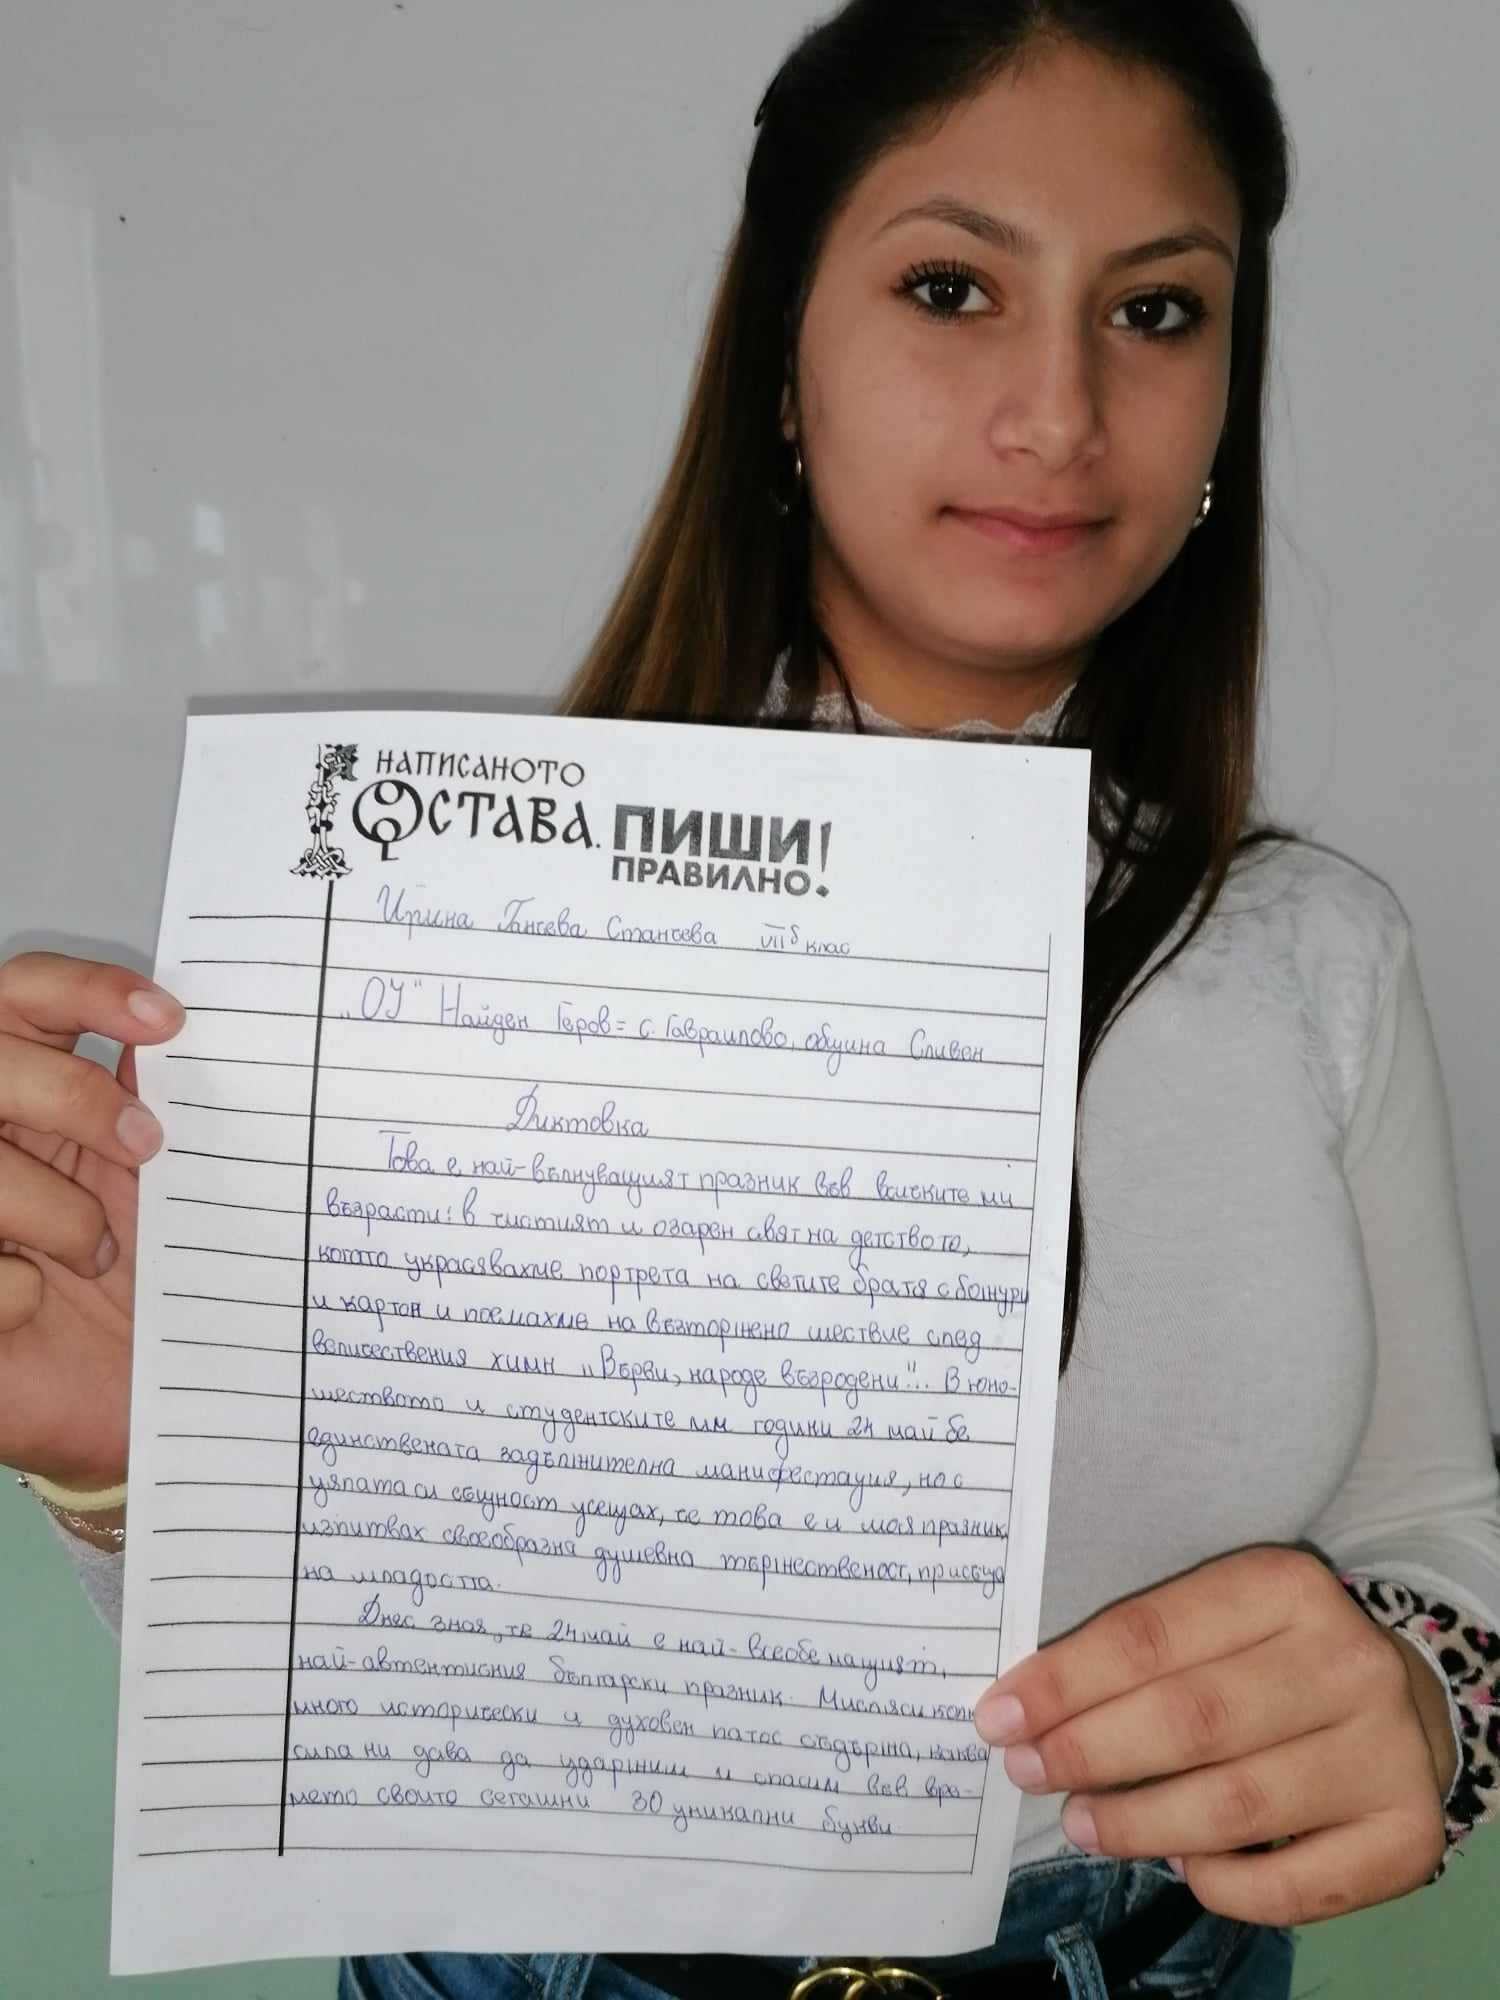 НАПИСАНОТО
ОСТАВА. ПИШИ
ПРАВИЛНО!
Ирина Гансева Стансева VII б клас
„ОУ" Найден Геров= с. Гавраилово, община Сливен
Диктовка
Това е най-вълнуващият празник във всичките ми
възрасти: в чистият и озарен свят на детството,
когато украсявахме портрета на светите братя с божури
и картон и поемахме на възторжено шествие след
величествения химн „Върви, народе възродени"... В юно-
шеството и студентските ми години 24 май бе
единствената задължителна манифестация, но с
цялата си същност усещах, че това е и моя празник,
изпитвах своеобразна душевна тържественост, присъща
на младостта.
Днес зная, че 24 май е най-всеобемащият,
най-автентисния български празник. Мисля си колко
много исторически и духовен патос съдържа, каква
сила ни дава да удържим и спасим във вре-
мето своите сегашни 30 уникални букви